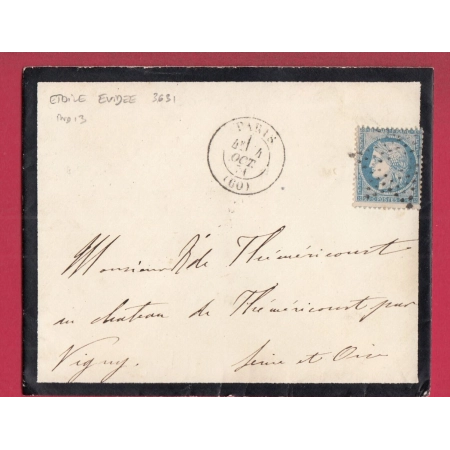 ETOILE EVIDEE 3631
IND 13
PARIS
4
OCT.
71
(60)
POSTES
Monsieur R. de Théméricourt
au chateau de Théméricourt par
Vigny. Seine et Oise